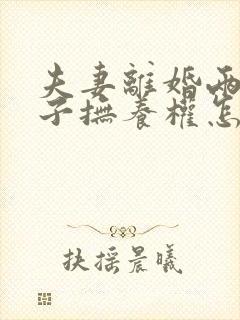 夫妻離婚兩
子撫養權怎
扶摇晨曦